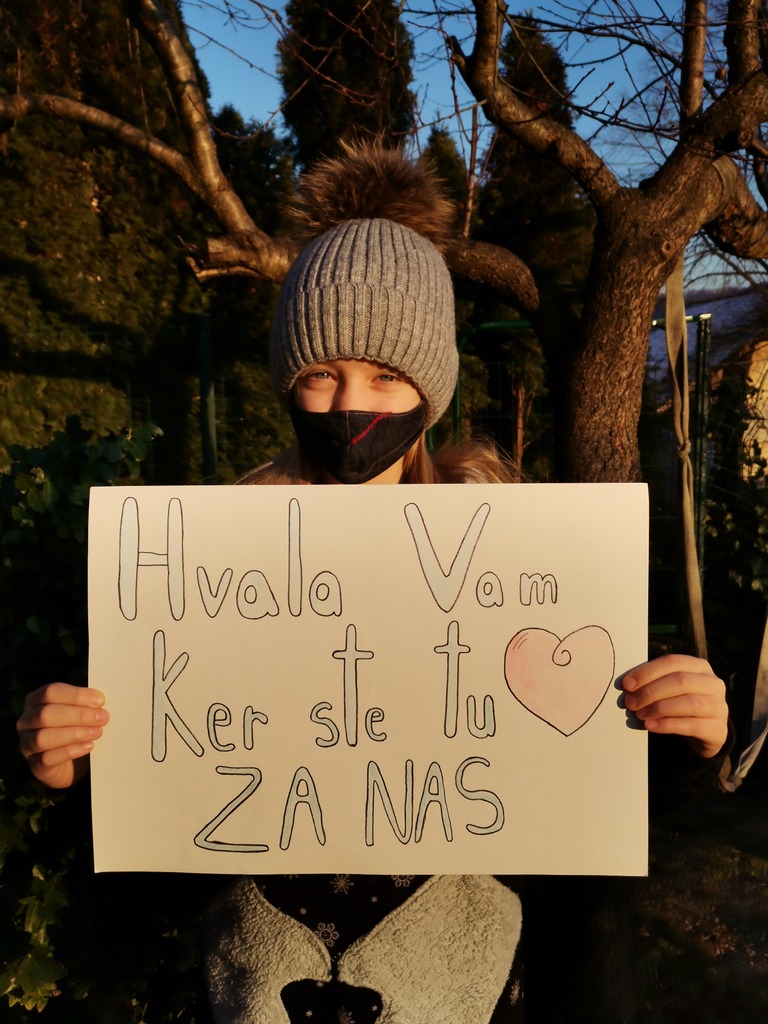 Hvala Vam
Ker ste tu
ZA NAS